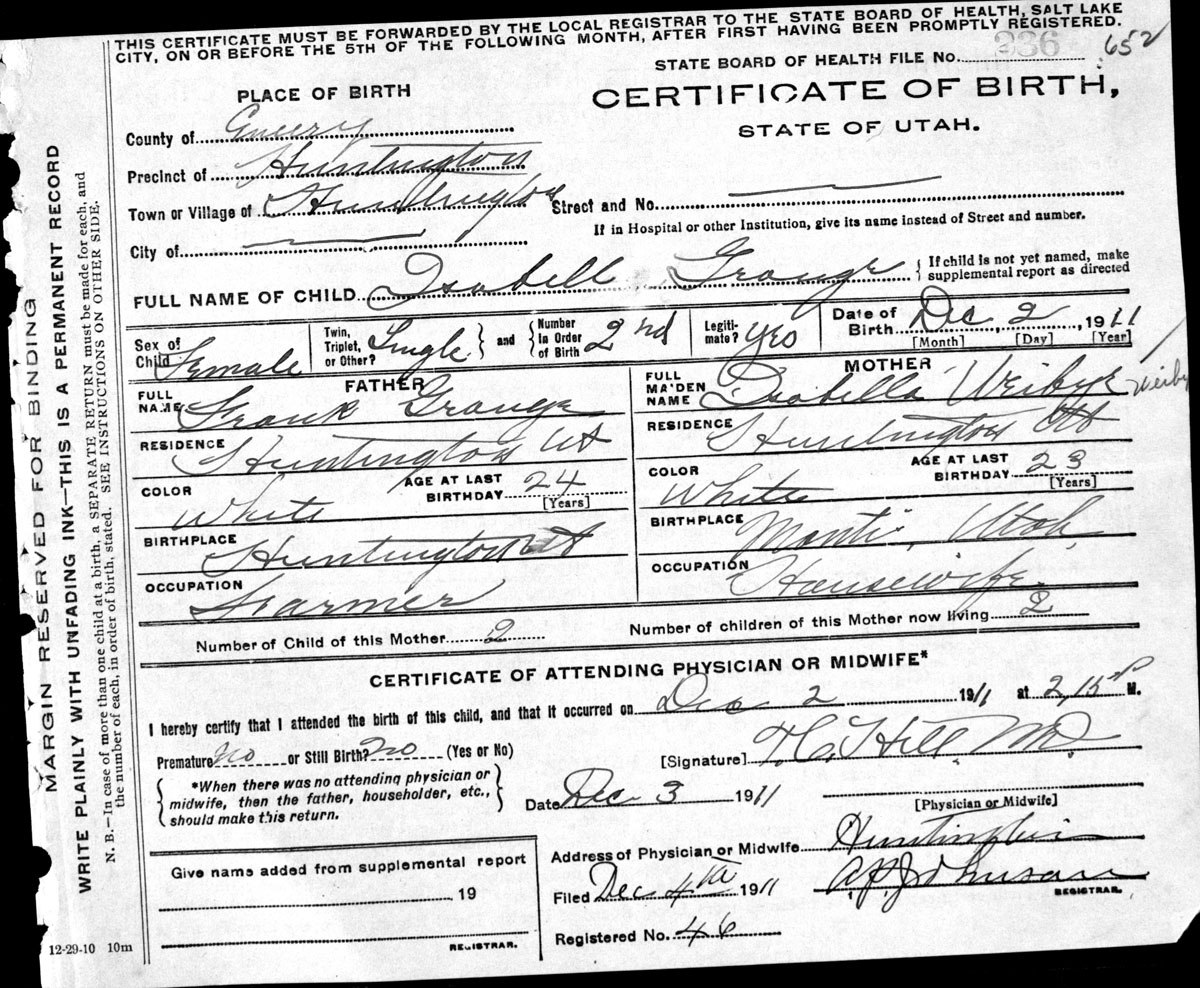 THIS CERTIFICATE MUST BE FORWARDED BY THE LOCAL REGISTRAR TO THE STATE BOARD OF HEALTH, SALT LAKE
CITY, ON OR BEFORE THE 5TH OF THE FOLLOWING MONTH, AFTER FIRST HAVING BEEN PROMPTLY REGISTERED.
STATE BOARD OF HEALTH FILE No. 336 652
PLACE OF BIRTH
CERTIFICATE OF BIRTH,
STATE OF UTAH.
County of Emery
Precinct of Huntington
Town or Village of Huntington Street and No.
If in Hospital or other Institution, give its name instead of Street and number.
City of
FULL NAME OF CHILD Isabell Grange { If child is not yet named, make
supplemental report as directed
Sex of
Child Female
Twin,
Triplet,
or Other? Single } and { Number
In Order
of Birth 2nd
Legiti-
mate? Yes
Date of
Birth Dec 2, 1911
[Month] [Day] [Year]
FATHER
FULL
NAME Frank Grange
RESIDENCE Huntington Ut
COLOR White
AGE AT LAST
BIRTHDAY 24
[Years]
BIRTHPLACE Huntington Ut
OCCUPATION Farmer
MOTHER
FULL
MAIDEN
NAME Isabella Weibye
RESIDENCE Huntington Ut
COLOR White
AGE AT LAST
BIRTHDAY 23
[Years]
BIRTHPLACE Manti, Utah
OCCUPATION Housewife
Number of Child of this Mother 2
Number of children of this Mother now living 2
CERTIFICATE OF ATTENDING PHYSICIAN OR MIDWIFE*
I hereby certify that I attended the birth of this child, and that it occurred on Dec 2 1911 at 2,15 P M.
Premature no or Still Birth? no (Yes or No)
[Signature] Hill MD
{ *When there was no attending physician or
midwife, then the father, householder, etc.,
should make this return. }
Date Dec 3 1911
[Physician or Midwife]
Address of Physician or Midwife Huntington
Give name added from supplemental report
19
REGISTRAR.
Filed Dec 4th 1911
Johnson
REGISTRAR.
Registered No. 46
MARGIN RESERVED FOR BINDING
WRITE PLAINLY WITH UNFADING INK—THIS IS A PERMANENT RECORD
N. B.—In case of more than one child at a birth, a SEPARATE RETURN must be made for each, and
the number of each, in order of birth, stated. SEE INSTRUCTIONS ON OTHER SIDE.
12-29-10 10m